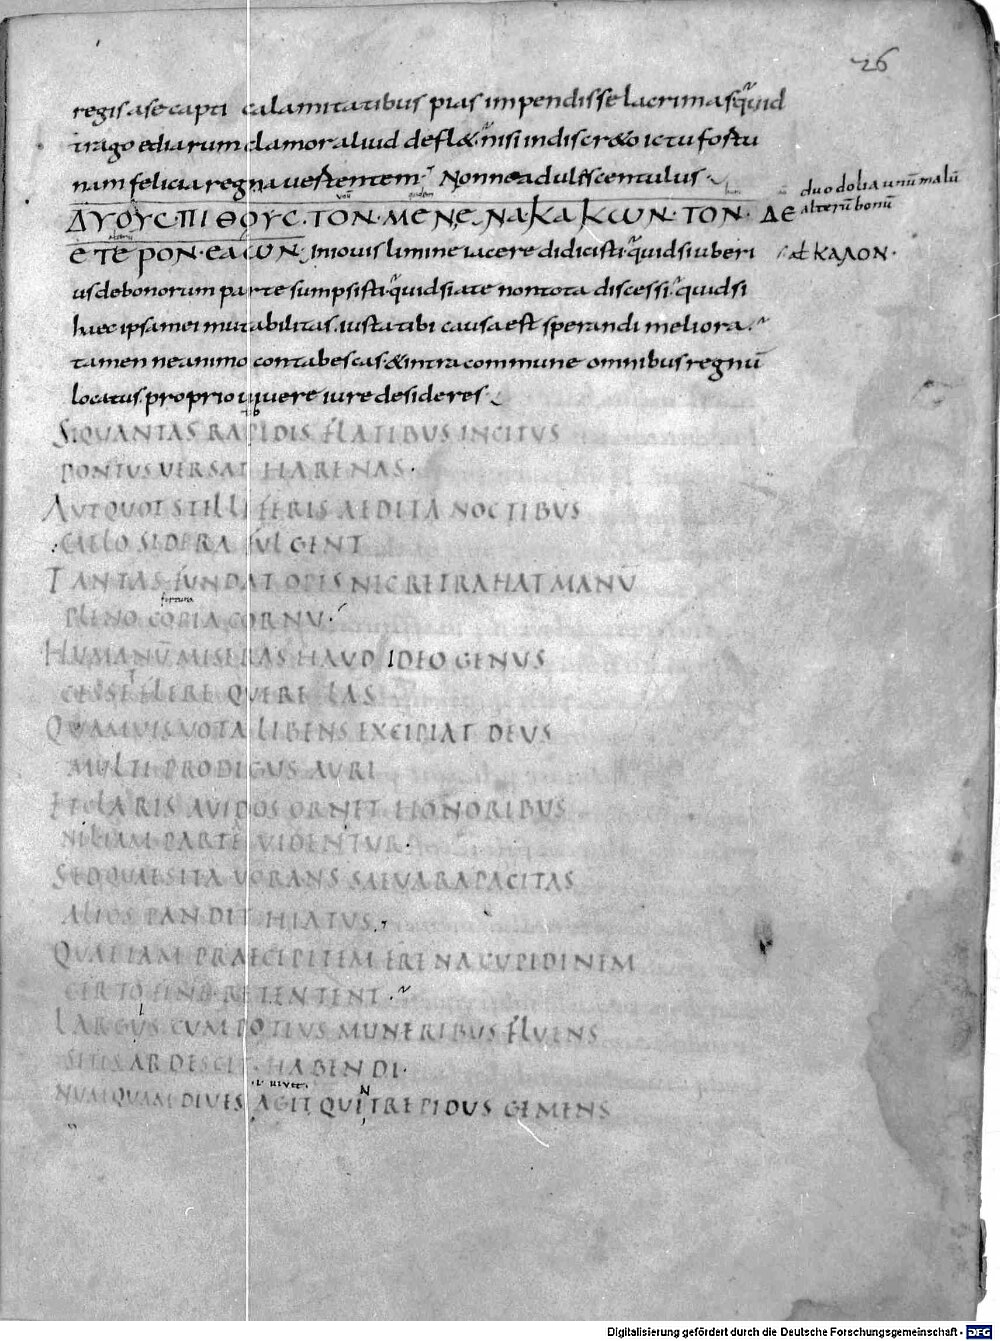 26
regis a se capti calamitatibus pias impendisse lacrimas quid
tragoediarum clamor aliud defl& nisi indiscr&o ictu fortu
nam felicia regna uertentem Nonne adulescentulus
duo dolia unū malū
alterū bonū
ΔΥΟΥC·ΠΙΘΟΥC·ΤΟΝ·ΜΕΝΕΝΑ·ΚΑΚωΝ·ΤΟΝ·ΔΕ
ΕΤΕΡΟΝ·ΕΑωΝ· In iouis limine iacere didicisti· quid si uberi
ΚΑΛΟΝ·
us de bonorum parte sumpsisti· quid si a te non tota discessi· quid si
haec ipsa mei mutabilitas iusta tibi causa est sperandi meliora
tamen ne animo contabescas· & intra commune omnibus regnū
locatus proprio uiuere iure desideres
SIQUANTAS RAPIDIS FLATIBUS INCITUS
PONTUS VERSAT HARENAS·
AUT QUOT STELLIFERIS AEDITA NOCTIBUS
CAELO SIDERA FULGENT
TANTAS FUNDAT OPES NEC RETRAHAT MANŪ
fortuna
PLENO COPIA CORNU·
HUMANŪ MISERAS HAUD IDEO GENUS
CESSET FLERE QUERELAS
QUAMVIS VOTA LIBENS EXCIPIAT DEUS
MULTI PRODIGUS AURI
ET CLARIS AVIDOS ORNET HONORIBUS
NIL IAM PARTE VIDENTUR·
SED QUAESITA VORANS SAEVA RAPACITAS
ALIOS PANDIT HIATUS
QUAE IAM PRAECIPITEM FRENA CUPIDINEM
CERTO FINE RETENTENT·
LARGUS CUM POTIUS MUNERIBUS FLUENS
SITIS ARDESCIT· HABENDI·
NUMQUAM DIVES AGIT QUI TREPIDUS GEMENS
Digitalisierung gefördert durch die Deutsche Forschungsgemeinschaft - DFG